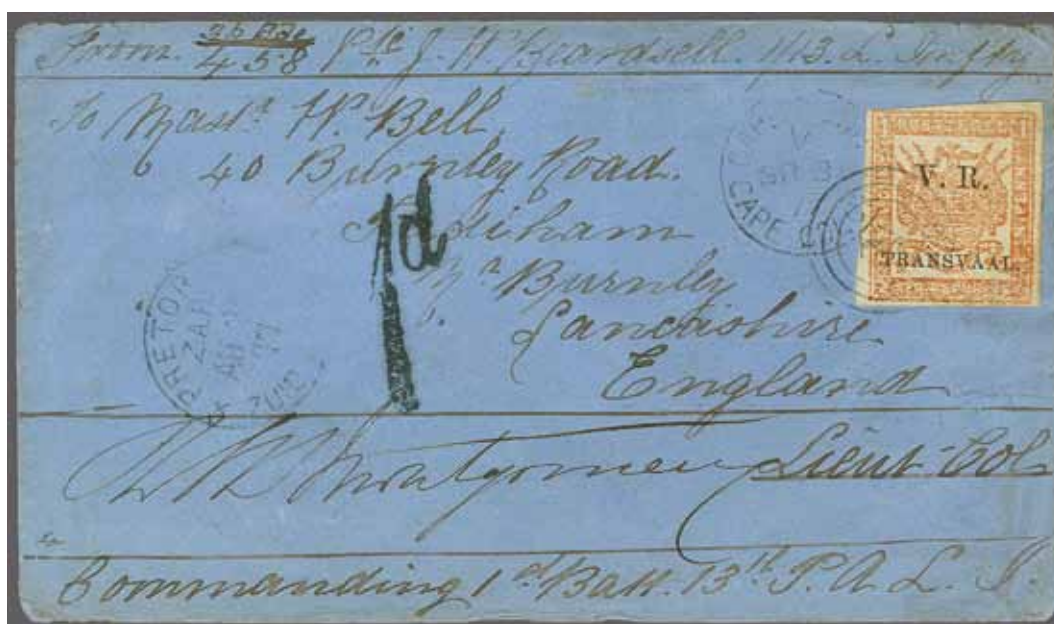 From. 26 Bde 458 Pte J. W. Beardsell. 1/13. L. Inftry
To Mastr H. Bell,
40 Burnley Road.
Padiham
Nr Burnley
Lancashire
England
1d
V. R.
TRANSVAAL.
CAPE
PRETORI
Montgomery Lieut-Col
Commanding 1st Batt. 13th P. A. L. I.